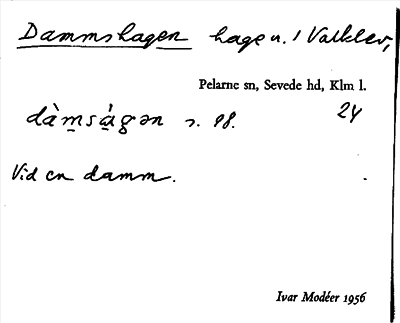 Dammshagen hage u. / Valklev,
Pelarne sn, Sevede hd, Klm l.
dàmságən s. 98. 24
Vid en damm.
Ivar Modéer 1956